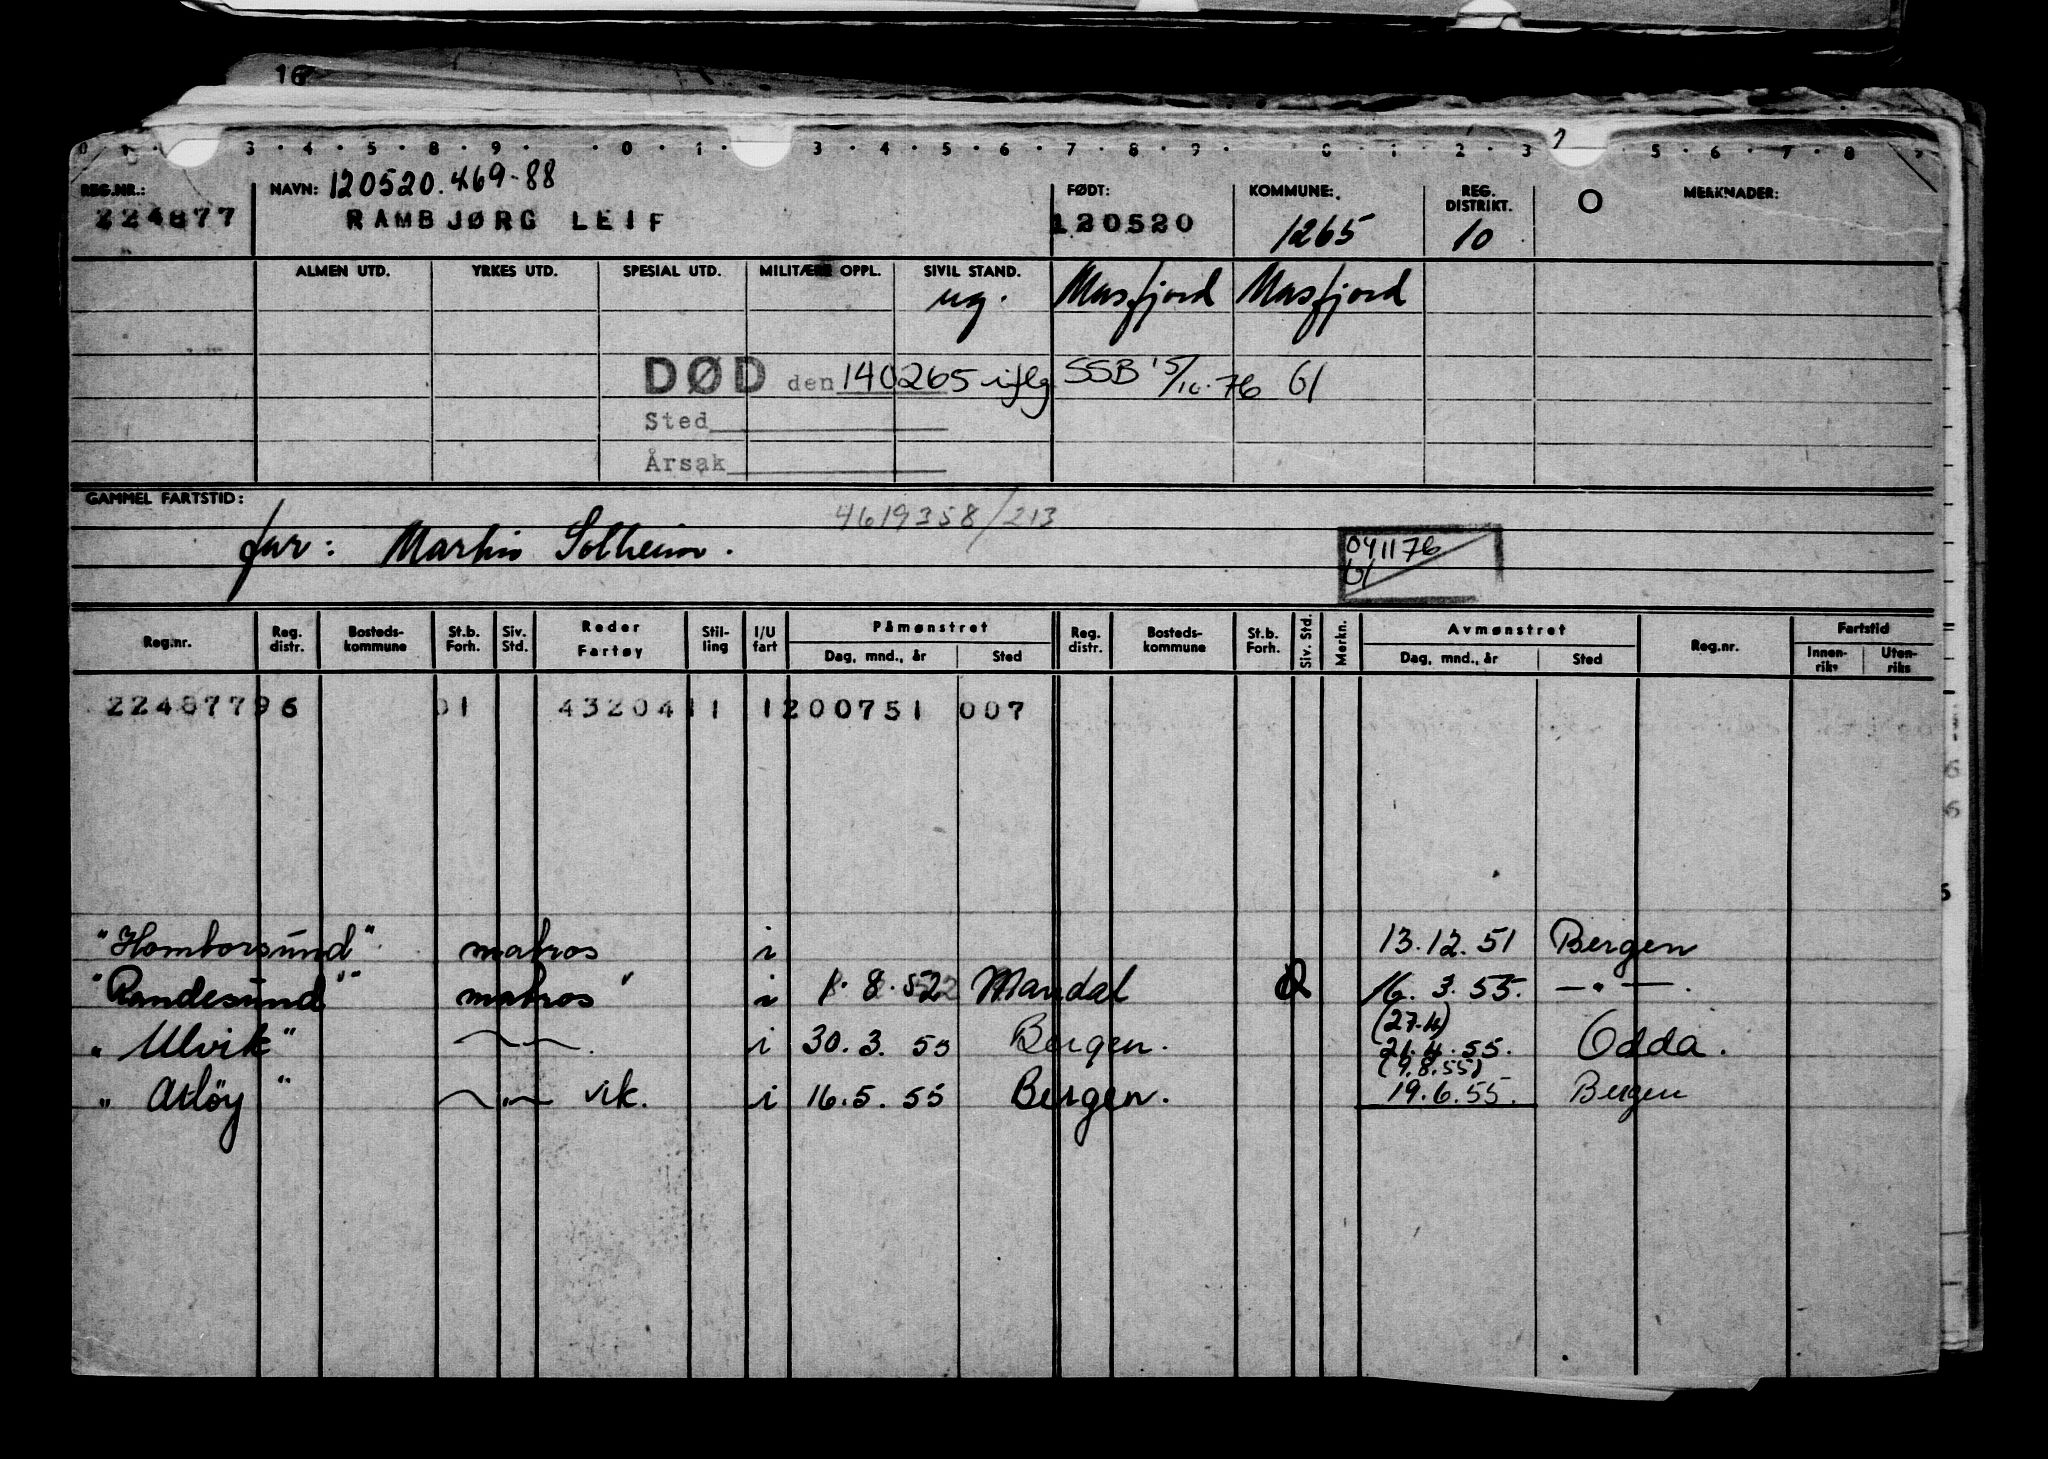 16
0 1 3 · 4 · 5 · 8 · 9 · · 0 · 1 · 3 · 4 · 5 · 6 · 7 · 8 · 9 · 0 · 1 · 2 · 3 7 5 · 6 · 7 · 8
REG.NR.: NAVN: 120520.469-88 FØDT: KOMMUNE: REG. DISTRIKT. O MERKNADER:
224877 RAMBJØRG LEIF 120520 1265 10
ALMEN UTD. YRKES UTD. SPESIAL UTD. MILITÆRE OPPL. SIVIL STAND.
ug. Masfjord Masfjord
DØD den 140265 iflg SSB 15/10.76 Gl
Sted
Årsak
GAMMEL FARTSTID:
4619358/213
far: Martin Solheim.
041176
Gl
Reg.nr. Reg. distr. Bosteds-kommune St.b. Forh. Siv. Std. Reder Fartøy Stil-ling I/U fart Påmønstret Dag, mnd., år Sted Reg. distr. Bosteds-kommune St.b. Forh. Siv. Std. Merkn. Avmønstret Dag, mnd., år Sted Reg.nr. Fartstid Innen-riks Uten-riks
22487796 01 4320411 1200751 007
"Homborsund" matros i 13.12.51 Bergen
"Randesund" matros " i 1.8.52 Mandal 16.3.55. —"—.
(27.4)
"Ulvik" —"—. i 30.3.55 Bergen. 21.4.55. Odda.
(9.8.55)
"Atløy" —"— vik. i 16.5.55 Bergen. 19.6.55. Bergen